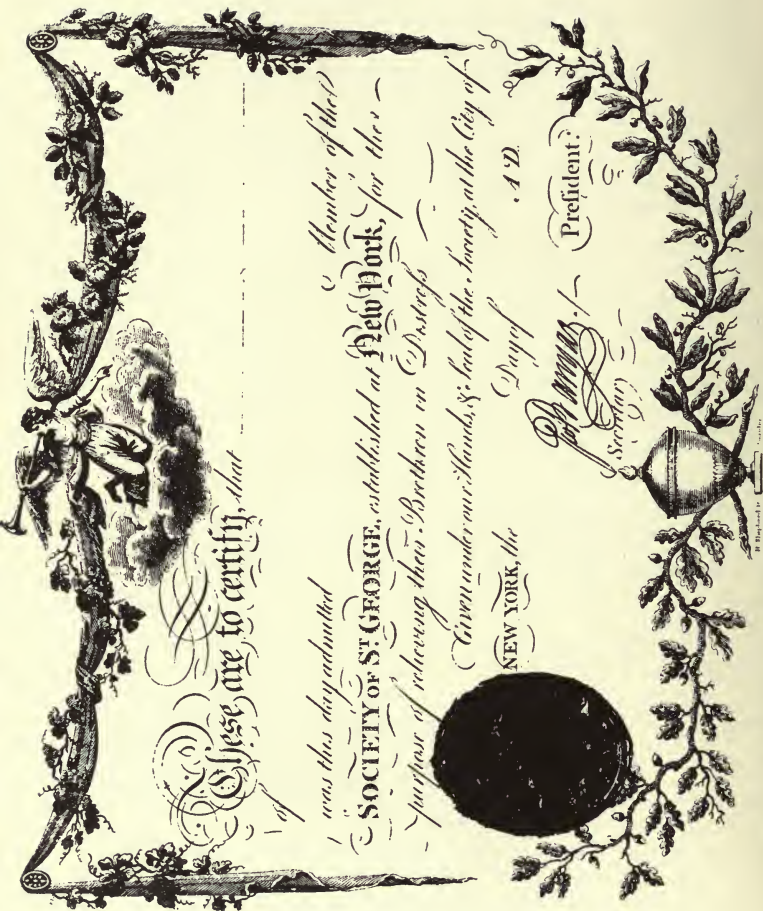 These are to certify, that
of
was this day admitted Member of the
SOCIETY OF ST. GEORGE, established at New York, for the
purpose of relieving their Brethren in Distress
Given under our Hands, & Seal of the Society, at the City of
NEW YORK, the Day of A.D.
Secretary
Preſident.